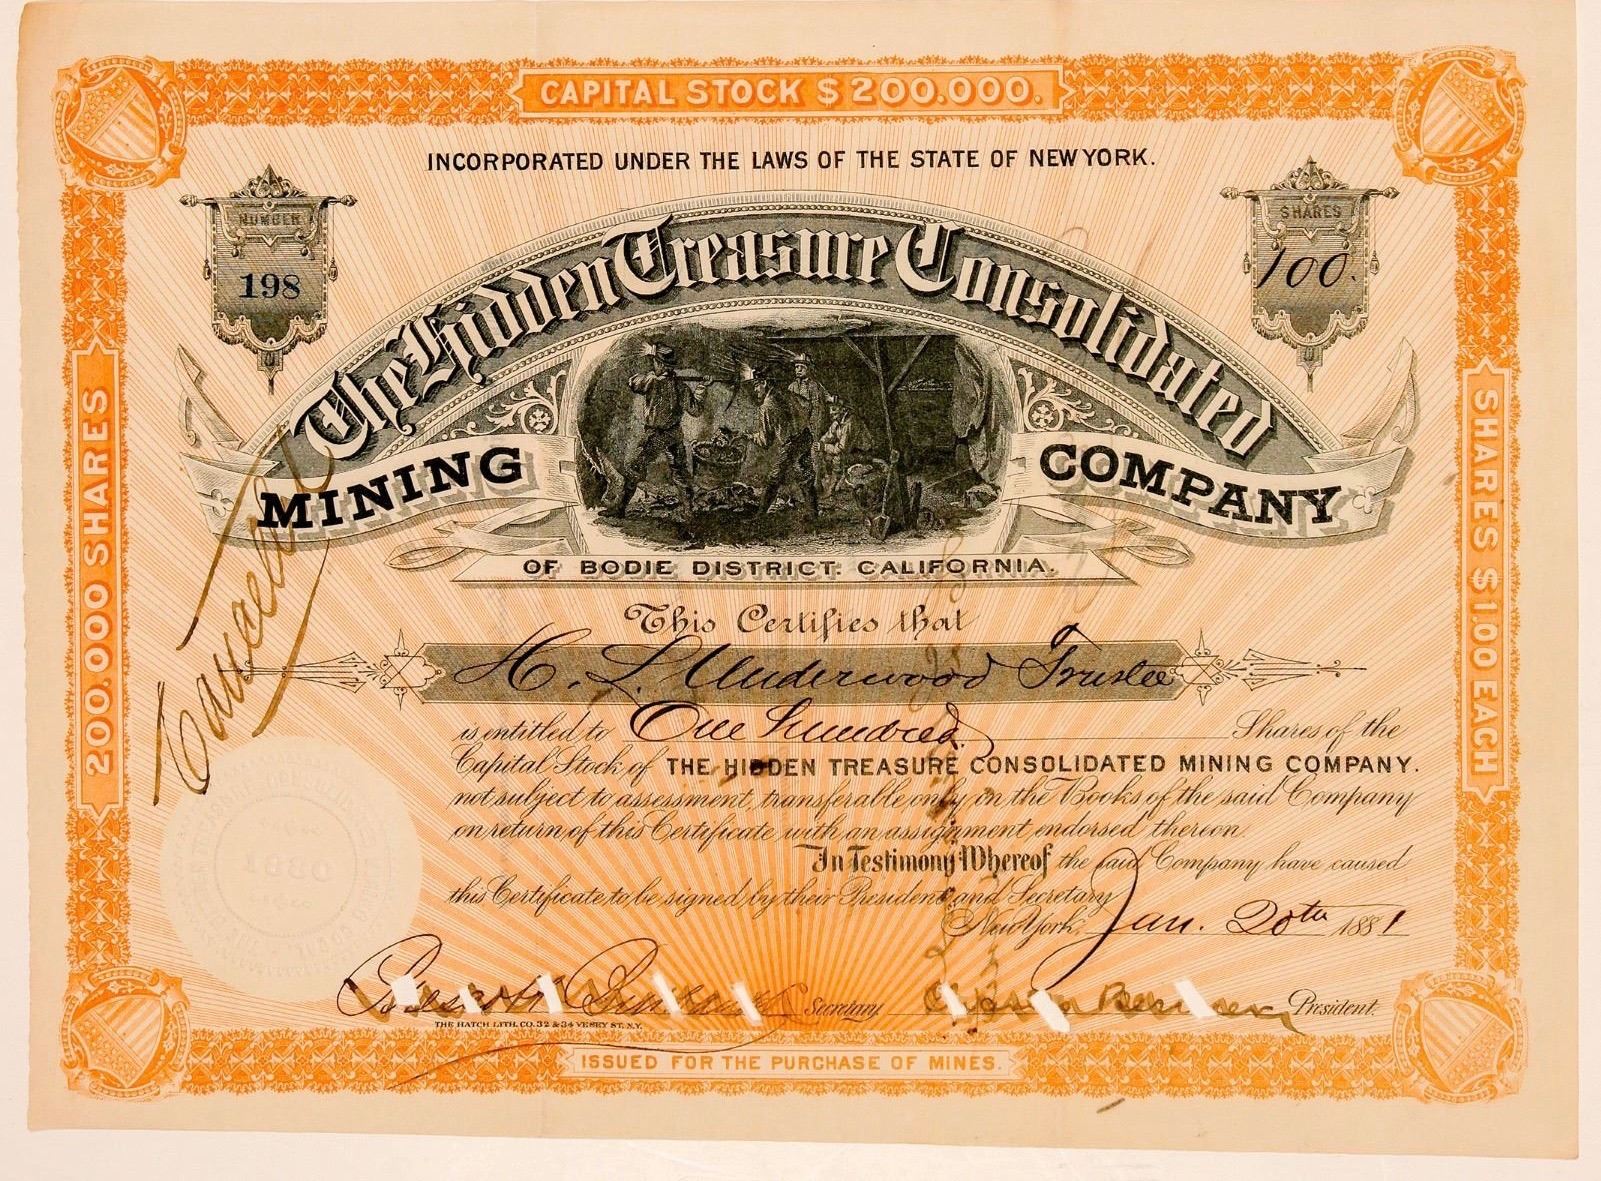 CAPITAL STOCK $200.000.
INCORPORATED UNDER THE LAWS OF THE STATE OF NEW YORK.
NUMBER
198
SHARES
100.
The Hidden Treasure Consolidated
MINING COMPANY
OF BODIE DISTRICT: CALIFORNIA.
200.000 SHARES
SHARES $1.00 EACH
Cancelled
This Certifies that
H. L. Underwood Trustee
is entitled to One Hundred Shares of the
Capital Stock of THE HIDDEN TREASURE CONSOLIDATED MINING COMPANY.
not subject to assessment, transferable only in the Books of the said Company
on return of this Certificate with an assignment endorsed thereon.
In Testimony Whereof the said Company have caused
this Certificate to be signed by their President and Secretary
New York, Jan. 20th 1881
Secretary
President.
THE HATCH LITH. CO. 32 & 34 VESEY ST. N.Y.
ISSUED FOR THE PURCHASE OF MINES.